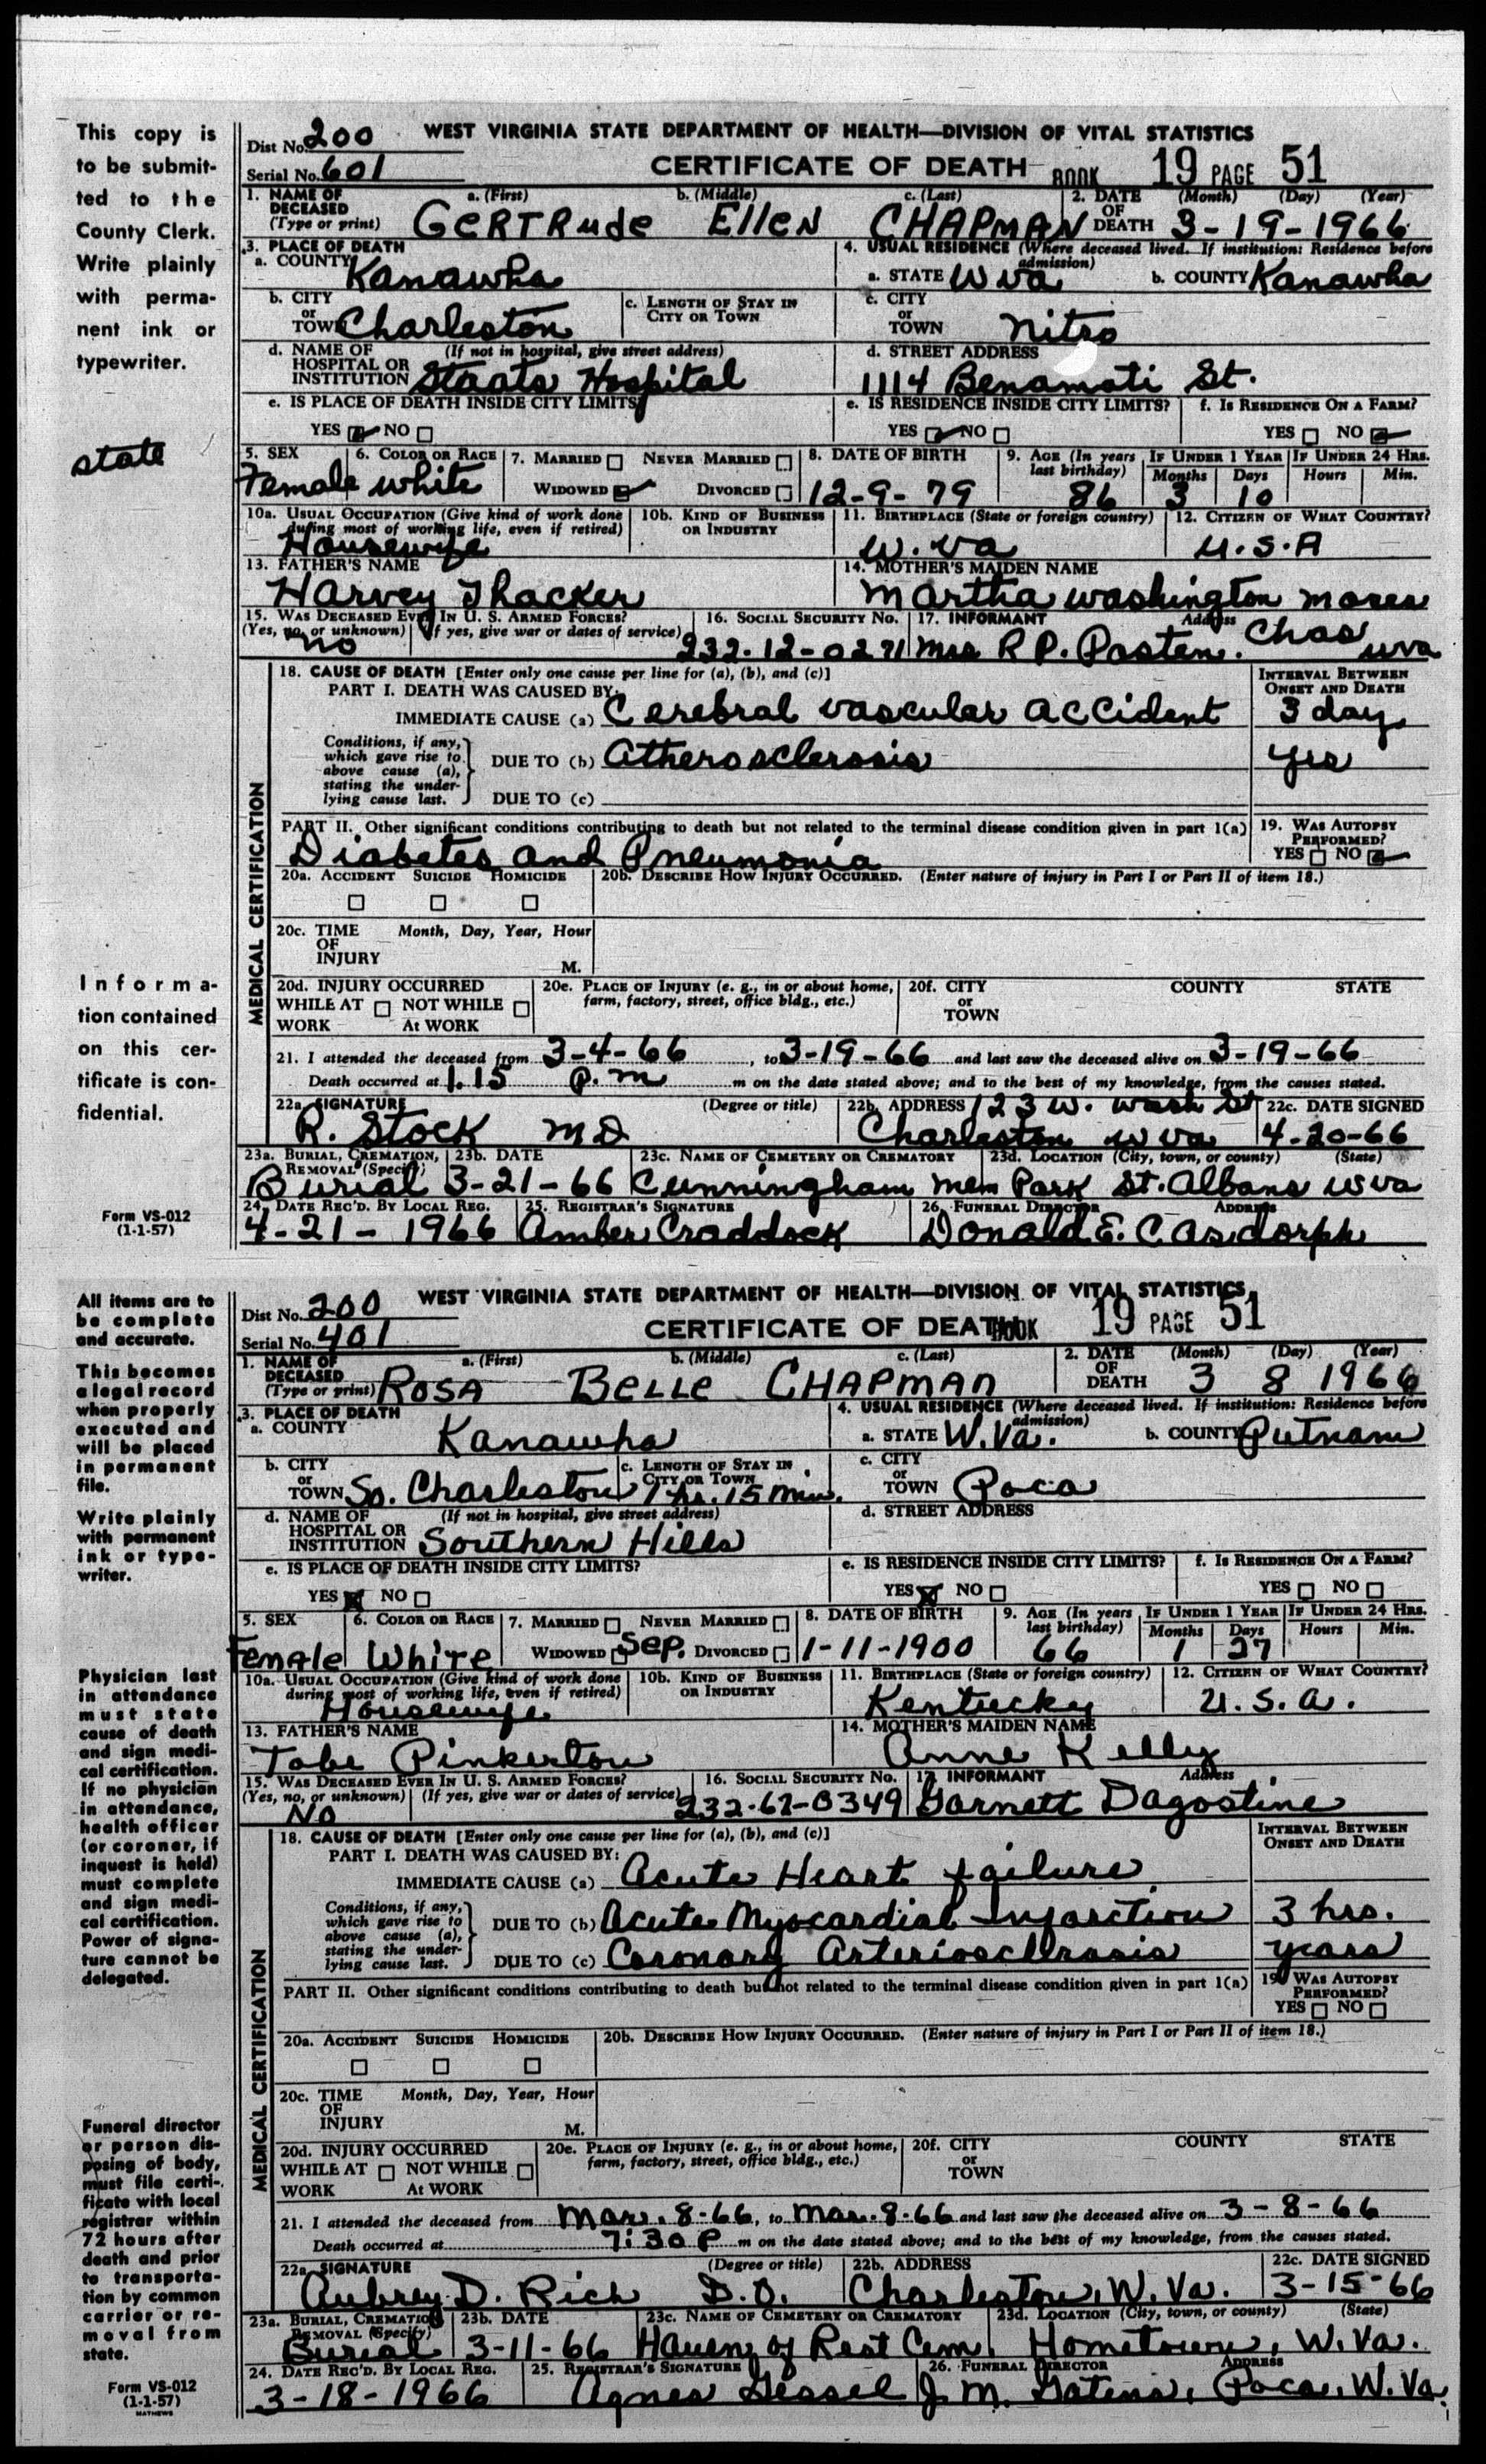 This copy is
to be submit-
ted to the
County Clerk.
Write plainly
with perma-
nent ink or
typewriter.
state
Informa-
tion contained
on this cer-
tificate is con-
fidential.
Form VS-012
(1-1-57)
WEST VIRGINIA STATE DEPARTMENT OF HEALTH—DIVISION OF VITAL STATISTICS
Dist No. 200
Serial No. 601
CERTIFICATE OF DEATH BOOK 19 PAGE 51
1. NAME OF DECEASED (Type or print) a. (First) b. (Middle) c. (Last) GERTRUDE ELLEN CHAPMAN
2. DATE OF DEATH (Month) (Day) (Year) 3-19-1966
3. PLACE OF DEATH
a. COUNTY Kanawha
4. USUAL RESIDENCE (Where deceased lived. If institution: Residence before admission)
a. STATE W va b. COUNTY Kanawha
b. CITY or TOWN Charleston
c. LENGTH OF STAY IN CITY OR TOWN
c. CITY or TOWN Nitro
d. NAME OF HOSPITAL OR INSTITUTION (If not in hospital, give street address) Staats Hospital
d. STREET ADDRESS 1114 Benamati St.
e. IS PLACE OF DEATH INSIDE CITY LIMITS? YES NO
e. IS RESIDENCE INSIDE CITY LIMITS? YES NO
f. IS RESIDENCE ON A FARM? YES NO
5. SEX Female
6. COLOR OR RACE White
7. MARRIED NEVER MARRIED WIDOWED DIVORCED
8. DATE OF BIRTH 12-9-79
9. AGE (In years last birthday) 86
IF UNDER 1 YEAR Months 3 Days 10
IF UNDER 24 HRS. Hours Min.
10a. USUAL OCCUPATION (Give kind of work done during most of working life, even if retired) Housewife
10b. KIND OF BUSINESS OR INDUSTRY
11. BIRTHPLACE (State or foreign country) W. Va
12. CITIZEN OF WHAT COUNTRY? U.S.A
13. FATHER'S NAME Harvey Thacker
14. MOTHER'S MAIDEN NAME Martha Washington
15. WAS DECEASED EVER IN U. S. ARMED FORCES? (Yes, no, or unknown) (If yes, give war or dates of service) no
16. SOCIAL SECURITY No. 232-12-0271
17. INFORMANT Address Mrs R P. Pasten. Chas wva
MEDICAL CERTIFICATION
18. CAUSE OF DEATH [Enter only one cause per line for (a), (b), and (c)]
PART I. DEATH WAS CAUSED BY:
INTERVAL BETWEEN ONSET AND DEATH
IMMEDIATE CAUSE (a) Cerebral vascular accident 3 day
Conditions, if any, which gave rise to above cause (a), stating the underlying cause last.
DUE TO (b) Atherosclerosis yrs
DUE TO (c)
PART II. Other significant conditions contributing to death but not related to the terminal disease condition given in part 1(a)
Diabetes and Pneumonia
19. WAS AUTOPSY PERFORMED? YES NO
20a. ACCIDENT SUICIDE HOMICIDE
20b. DESCRIBE HOW INJURY OCCURRED. (Enter nature of injury in Part I or Part II of item 18.)
20c. TIME OF INJURY Month, Day, Year, Hour M.
20d. INJURY OCCURRED WHILE AT WORK NOT WHILE At WORK
20e. PLACE OF INJURY (e. g., in or about home, farm, factory, street, office bldg., etc.)
20f. CITY or TOWN COUNTY STATE
21. I attended the deceased from 3-4-66, to 3-19-66 and last saw the deceased alive on 3-19-66
Death occurred at 1.15 P.m m on the date stated above; and to the best of my knowledge, from the causes stated.
22a. SIGNATURE (Degree or title) R. Stock MD
22b. ADDRESS 123 W. Wash St Charleston w va
22c. DATE SIGNED 4-20-66
23a. BURIAL, CREMATION, REMOVAL (Specify) Burial
23b. DATE 3-21-66
23c. NAME OF CEMETERY OR CREMATORY Cunningham Mem Park
23d. LOCATION (City, town, or county) (State) St. Albans wva
24. DATE REC'D. BY LOCAL REG. 4-21-1966
25. REGISTRAR'S SIGNATURE Amber Craddock
26. FUNERAL DIRECTOR ADDRESS Donald E. Casdorph
All items are to
be complete
and accurate.
This becomes
a legal record
when properly
executed and
will be placed
in permanent
file.
Write plainly
with permanent
ink or type-
writer.
Physician last
in attendance
must state
cause of death
and sign medi-
cal certification.
If no physician
in attendance,
health officer
(or coroner, if
inquest is held)
must complete
and sign medi-
cal certification.
Power of signa-
ture cannot be
delegated.
Funeral director
or person dis-
posing of body,
must file certi-
ficate with local
registrar within
72 hours after
death and prior
to transporta-
tion by common
carrier or re-
moval from
state.
Form VS-012
(1-1-57)
MATHEWS
WEST VIRGINIA STATE DEPARTMENT OF HEALTH—DIVISION OF VITAL STATISTICS
Dist No. 200
Serial No. 401
CERTIFICATE OF DEATH BOOK 19 PAGE 51
1. NAME OF DECEASED (Type or print) a. (First) b. (Middle) c. (Last) ROSA BELLE CHAPMAN
2. DATE OF DEATH (Month) (Day) (Year) 3 8 1966
3. PLACE OF DEATH
a. COUNTY Kanawha
4. USUAL RESIDENCE (Where deceased lived. If institution: Residence before admission)
a. STATE W.Va. b. COUNTY Putnam
b. CITY or TOWN So. Charleston
c. LENGTH OF STAY IN CITY OR TOWN 1 hr. 15 Min.
c. CITY or TOWN Poca
d. NAME OF HOSPITAL OR INSTITUTION (If not in hospital, give street address) Southern Hills
d. STREET ADDRESS
e. IS PLACE OF DEATH INSIDE CITY LIMITS? YES NO
e. IS RESIDENCE INSIDE CITY LIMITS? YES NO
f. IS RESIDENCE ON A FARM? YES NO
5. SEX Female
6. COLOR OR RACE White
7. MARRIED NEVER MARRIED WIDOWED Sep. DIVORCED
8. DATE OF BIRTH 1-11-1900
9. AGE (In years last birthday) 66
IF UNDER 1 YEAR Months 1 Days 27
IF UNDER 24 HRS. Hours Min.
10a. USUAL OCCUPATION (Give kind of work done during most of working life, even if retired) Housewife
10b. KIND OF BUSINESS OR INDUSTRY
11. BIRTHPLACE (State or foreign country) Kentucky
12. CITIZEN OF WHAT COUNTRY? U.S.A.
13. FATHER'S NAME Tobe Pinkerton
14. MOTHER'S MAIDEN NAME Anne Kelley
15. WAS DECEASED EVER IN U. S. ARMED FORCES? (Yes, no, or unknown) (If yes, give war or dates of service) No
16. SOCIAL SECURITY No. 232-67-0349
17. INFORMANT Address Garnett Dagostine
MEDICAL CERTIFICATION
18. CAUSE OF DEATH [Enter only one cause per line for (a), (b), and (c)]
PART I. DEATH WAS CAUSED BY:
INTERVAL BETWEEN ONSET AND DEATH
IMMEDIATE CAUSE (a) Acute Heart failure
Conditions, if any, which gave rise to above cause (a), stating the underlying cause last.
DUE TO (b) Acute Myocardial Infarction 3 hrs.
DUE TO (c) Coronary Arteriosclerosis years
PART II. Other significant conditions contributing to death but not related to the terminal disease condition given in part 1(a)
19. WAS AUTOPSY PERFORMED? YES NO
20a. ACCIDENT SUICIDE HOMICIDE
20b. DESCRIBE HOW INJURY OCCURRED. (Enter nature of injury in Part I or Part II of item 18.)
20c. TIME OF INJURY Month, Day, Year, Hour M.
20d. INJURY OCCURRED WHILE AT WORK NOT WHILE At WORK
20e. PLACE OF INJURY (e. g., in or about home, farm, factory, street, office bldg., etc.)
20f. CITY or TOWN COUNTY STATE
21. I attended the deceased from Mar. 8-66, to Mar. 8-66 and last saw the deceased alive on 3-8-66
Death occurred at 7:30 P m on the date stated above; and to the best of my knowledge, from the causes stated.
22a. SIGNATURE (Degree or title) Aubrey D. Rich D.O.
22b. ADDRESS Charleston, W. Va.
22c. DATE SIGNED 3-15-66
23a. BURIAL, CREMATION, REMOVAL (Specify) Burial
23b. DATE 3-11-66
23c. NAME OF CEMETERY OR CREMATORY Haven of Rest Cem.
23d. LOCATION (City, town, or county) (State) Hometown, W. Va.
24. DATE REC'D. BY LOCAL REG. 3-18-1966
25. REGISTRAR'S SIGNATURE Agnes Gessel
26. FUNERAL DIRECTOR ADDRESS J. M. Gatens, Poca, W. Va.